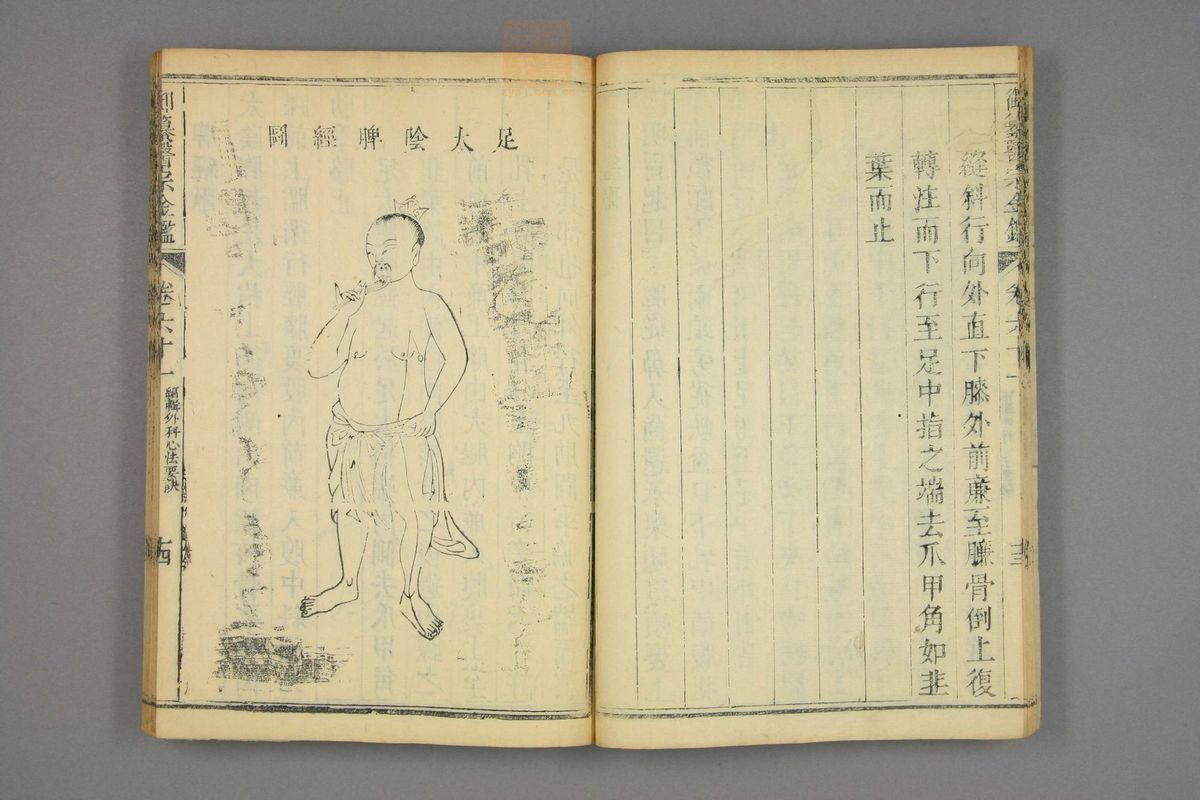 縫斜行向外直下膝外前廉至臁骨倒上復
轉注而下行至足中指之端去爪甲角如韭
葉而止
足太陰脾經圖
醫宗金鑑
卷六十一
編輯外科心法要訣
十四